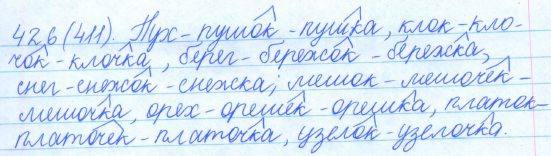 426(411). Пух - пушок - пушка, клок - кло-
чок - клочка, берег - бережок - бережка,
снег - снежок - снежка; мешок - мешочек -
мешочка, орех - орешек - орешка, платок -
платочек - платочка, узелок - узелочка.